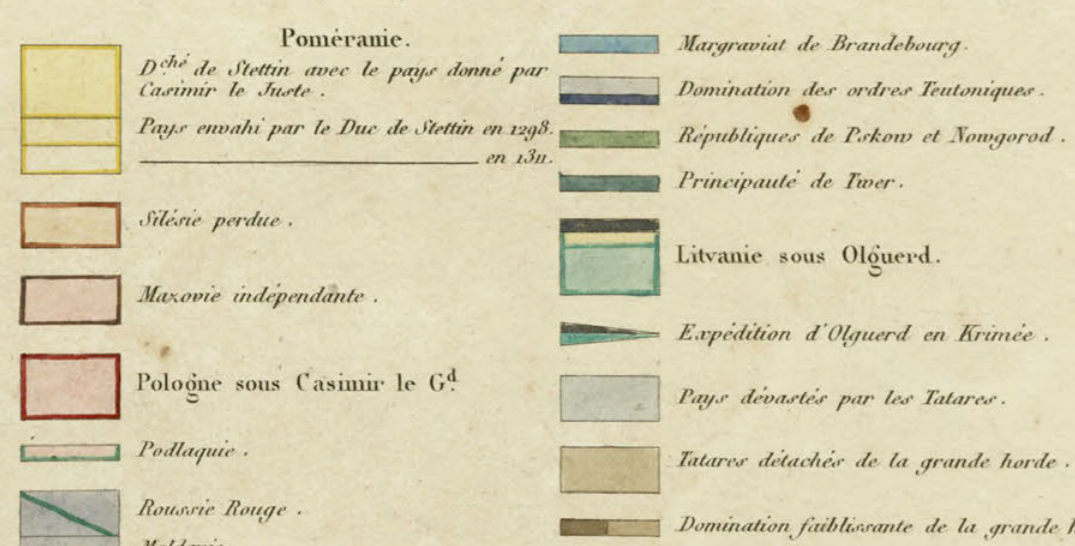 Poméranie.
D.ché de Stettin avec le pays donné par
Casimir le Juste.
Pays envahi par le Duc de Stettin en 1298.
en 1311.
Silésie perdue.
Mazovie indépendante.
Pologne sous Casimir le G.d
Podlaquie.
Roussie Rouge.
Moldavie
Margraviat de Brandebourg.
Domination des ordres Teutoniques.
Républiques de Pskow et Nowgorod.
Principauté de Twer.
Litvanie sous Olguerd.
Expédition d'Olguerd en Krimée.
Pays dévastés par les Tatares.
Tatares détachés de la grande horde.
Domination faiblissante de la grande